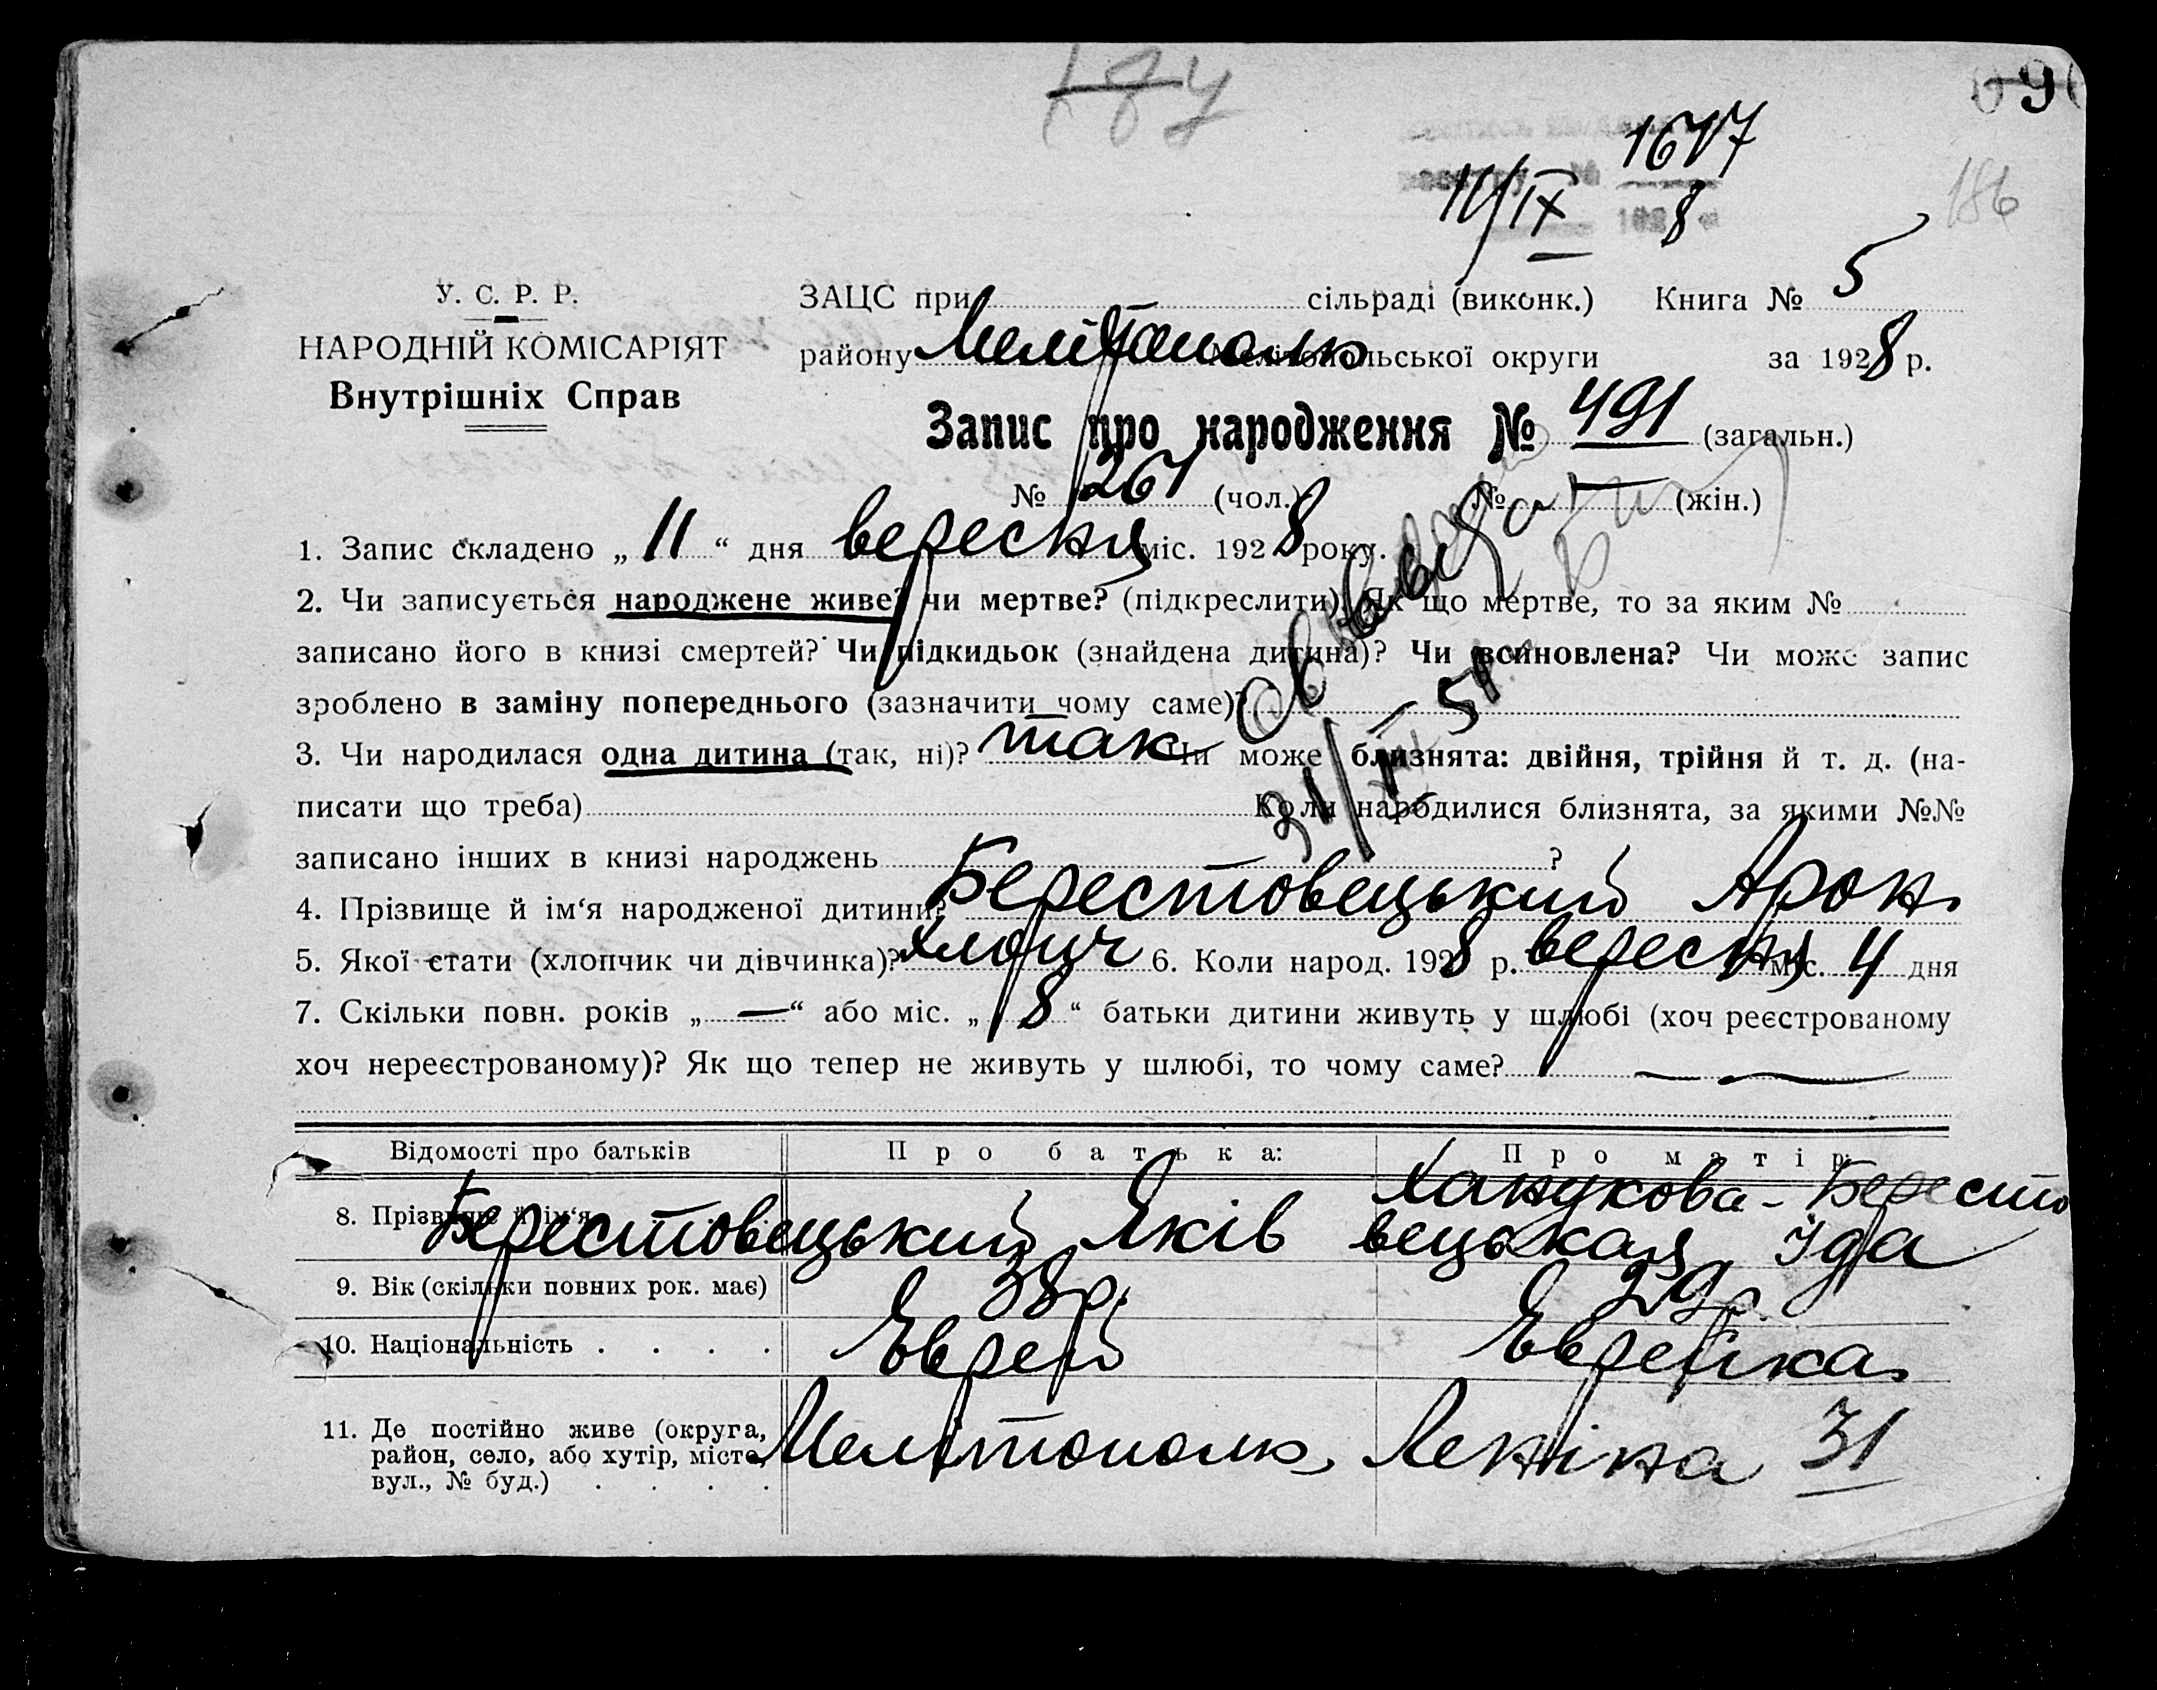 1617
11/IX 8
186
У. С. Р. Р.
НАРОДНІЙ КОМІСАРІЯТ
Внутрішніх Справ
ЗАЦС при сільраді (виконк.) Книга № 5
району Мелітополь Мелітопольської округи за 1928 р.
Запис про народження № 491 (загальн.)
№ 267 (чол.) № — (жін.)
1. Запис складено „ 11 “ дня вересня міс. 1928 року.
2. Чи записується народжене живе? чи мертве? (підкреслити) Як що мертве, то за яким №
записано його в книзі смертей? Чи підкидьок (знайдена дитина)? Чи всиновлена? Чи може запис
зроблено в заміну попереднього (зазначити чому саме)?
3. Чи народилася одна дитина (так, ні)? так Чи може близнята: двійня, трійня й т. д. (на-
писати що треба) Коли народилися близнята, за якими №№
записано інших в книзі народжень ?
4. Прізвище й ім‘я народженої дитини? Берестовецький Арон
5. Якої стати (хлопчик чи дівчинка)? хлопч 6. Коли народ. 1928 р. вересня міс. 4 дня
7. Скільки повн. років „ — “ або міс. „ 8 “ батьки дитини живуть у шлюбі (хоч реєстрованому
хоч нереєстрованому)? Як що тепер не живуть у шлюбі, то чому саме? — —
Відомості про батьків Про батька: Про матір:
8. Прізвище й ім‘я Берестовецький Яків Ханукова-Бересто
вецькая Іда
9. Вік (скільки повних рок. має) 38 р. 29 р.
10. Національність . . . . Єврей Єврейка
11. Де постійно живе (округа,
район, село, або хутір, місто, Мелітополь, Леніна 31
вул., № буд.) . . . .